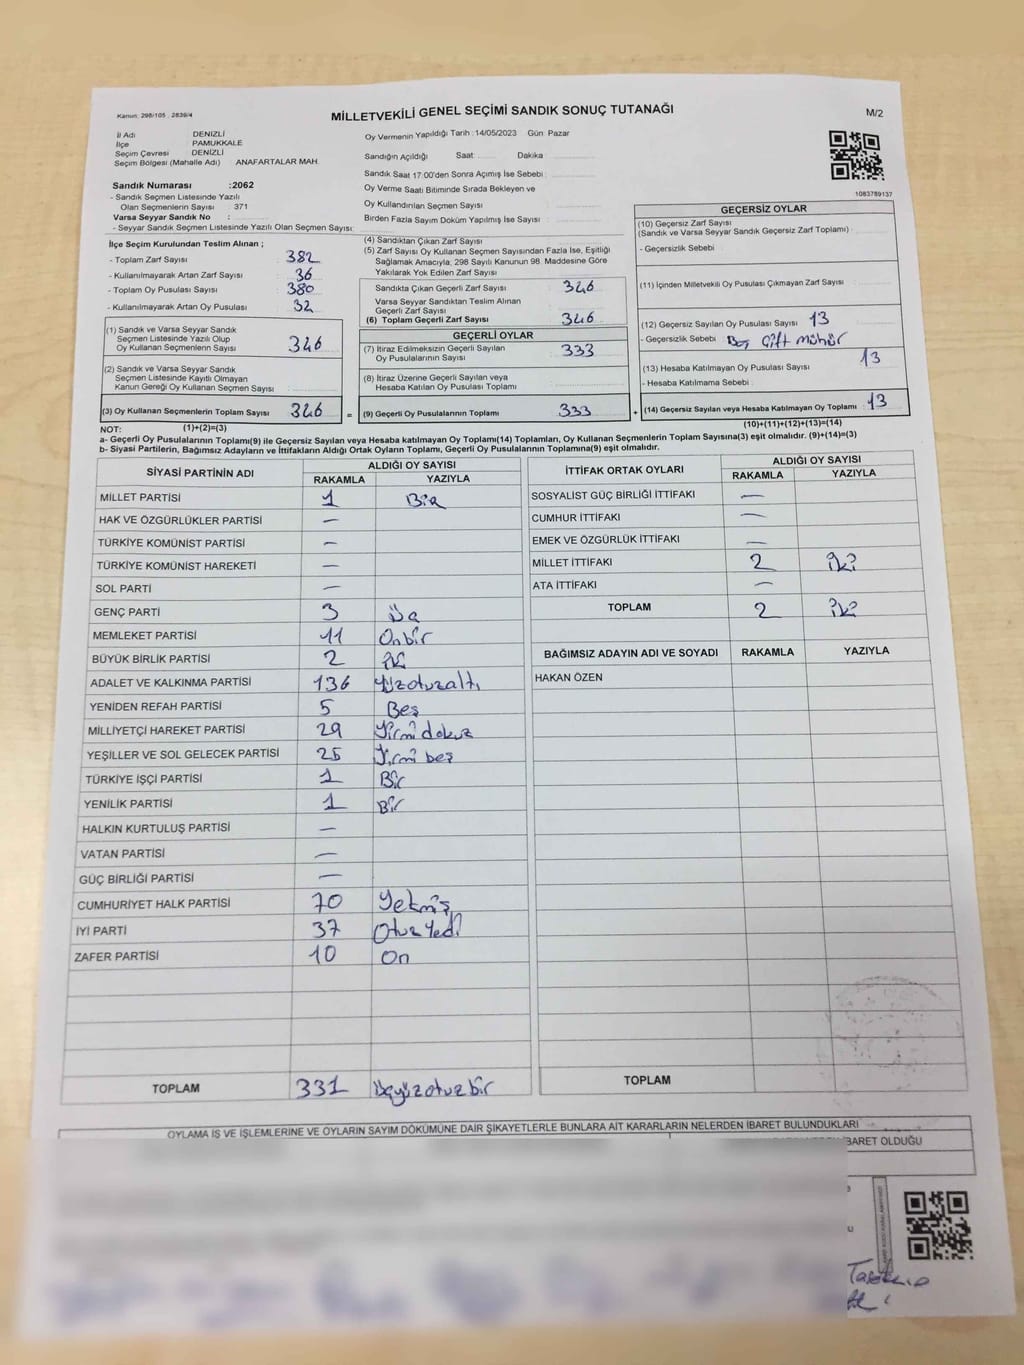 Kanun: 298/105 , 2839/4
MİLLETVEKİLİ GENEL SEÇİMİ SANDIK SONUÇ TUTANAĞI
M/2
İl Adı DENİZLİ
İlçe PAMUKKALE
Seçim Çevresi DENİZLİ
Seçim Bölgesi (Mahalle Adı) ANAFARTALAR MAH.
Sandık Numarası :2062
- Sandık Seçmen Listesinde Yazılı
Olan Seçmenlerin Sayısı : 371
Varsa Seyyar Sandık No :
- Seyyar Sandık Seçmen Listesinde Yazılı Olan Seçmen Sayısı:
Oy Vermenin Yapıldığı Tarih :14/05/2023 Gün: Pazar
Sandığın Açıldığı Saat: Dakika:
Sandık Saat 17:00'den Sonra Açımış İse Sebebi:
Oy Verme Saati Bitiminde Sırada Bekleyen ve
Oy Kullandırılan Seçmen Sayısı:
Birden Fazla Sayım Döküm Yapılmış İse Sayısı:
1083789137
İlçe Seçim Kurulundan Teslim Alınan ;
- Toplam Zarf Sayısı : 382
- Kullanılmayarak Artan Zarf Sayısı : 36
- Toplam Oy Pusulası Sayısı : 380
- Kullanılmayarak Artan Oy Pusulası : 32
(1) Sandık ve Varsa Seyyar Sandık
Seçmen Listesinde Yazılı Olup
Oy Kullanan Seçmenlerin Sayısı : 346
(2) Sandık ve Varsa Seyyar Sandık
Seçmen Listesinde Kayıtlı Olmayan
Kanun Gereği Oy Kullanan Seçmen Sayısı :
(3) Oy Kullanan Seçmenlerin Toplam Sayısı : 346 =
(4) Sandıktan Çıkan Zarf Sayısı :
(5) Zarf Sayısı Oy Kullanan Seçmen Sayısından Fazla İse, Eşitliği
Sağlamak Amacıyla, 298 Sayılı Kanunun 98. Maddesine Göre
Yakılarak Yok Edilen Zarf Sayısı :
Sandıkta Çıkan Geçerli Zarf Sayısı : 346
Varsa Seyyar Sandıktan Teslim Alınan
Geçerli Zarf Sayısı :
(6) Toplam Geçerli Zarf Sayısı : 346
GEÇERLİ OYLAR
(7) İtiraz Edilmeksizin Geçerli Sayılan
Oy Pusulalarının Sayısı : 333
(8) İtiraz Üzerine Geçerli Sayılan veya
Hesaba Katılan Oy Pusulası Toplamı :
(9) Geçerli Oy Pusulalarının Toplamı : 333 +
GEÇERSİZ OYLAR
(10) Geçersiz Zarf Sayısı
(Sandık ve Varsa Seyyar Sandık Geçersiz Zarf Toplamı) :
- Geçersizlik Sebebi :
(11) İçinden Milletvekili Oy Pusulası Çıkmayan Zarf Sayısı :
(12) Geçersiz Sayılan Oy Pusulası Sayısı : 13
- Geçersizlik Sebebi : Boş Çift Mühür
(13) Hesaba Katılmayan Oy Pusulası Sayısı : 13
- Hesaba Katılmama Sebebi :
(14) Geçersiz Sayılan veya Hesaba Katılmayan Oy Toplamı : 13
NOT: (1)+(2)=(3)
(10)+(11)+(12)+(13)=(14)
a- Geçerli Oy Pusulalarının Toplamı(9) ile Geçersiz Sayılan veya Hesaba katılmayan Oy Toplamı(14) Toplamları, Oy Kullanan Seçmenlerin Toplam Sayısına(3) eşit olmalıdır. (9)+(14)=(3)
b- Siyasi Partilerin, Bağımsız Adayların ve İttifakların Aldığı Ortak Oyların Toplamı, Geçerli Oy Pusulalarının Toplamına(9) eşit olmalıdır.
SİYASİ PARTİNİN ADI ALDIĞI OY SAYISI
RAKAMLA YAZIYLA
MİLLET PARTİSİ 1 Bir
HAK VE ÖZGÜRLÜKLER PARTİSİ —
TÜRKİYE KOMÜNİST PARTİSİ —
TÜRKİYE KOMÜNİST HAREKETİ —
SOL PARTİ —
GENÇ PARTİ 3 Üç
MEMLEKET PARTİSİ 11 Onbir
BÜYÜK BİRLİK PARTİSİ 2 İki
ADALET VE KALKINMA PARTİSİ 136 Yüzotuzaltı
YENİDEN REFAH PARTİSİ 5 Beş
MİLLİYETÇİ HAREKET PARTİSİ 29 Yirmi dokuz
YEŞİLLER VE SOL GELECEK PARTİSİ 25 Yirmi beş
TÜRKİYE İŞÇİ PARTİSİ 1 Bir
YENİLİK PARTİSİ 1 Bir
HALKIN KURTULUŞ PARTİSİ —
VATAN PARTİSİ —
GÜÇ BİRLİĞİ PARTİSİ —
CUMHURİYET HALK PARTİSİ 70 Yetmiş
İYİ PARTİ 37 Otuz Yedi
ZAFER PARTİSİ 10 On
TOPLAM 331 üçyüzotuzbir
İTTİFAK ORTAK OYLARI ALDIĞI OY SAYISI
RAKAMLA YAZIYLA
SOSYALİST GÜÇ BİRLİĞİ İTTİFAKI —
CUMHUR İTTİFAKI —
EMEK VE ÖZGÜRLÜK İTTİFAKI —
MİLLET İTTİFAKI 2 iki
ATA İTTİFAKI —
TOPLAM 2 iki
BAĞIMSIZ ADAYIN ADI VE SOYADI RAKAMLA YAZIYLA
HAKAN ÖZEN
TOPLAM
OYLAMA İŞ VE İŞLEMLERİNE VE OYLARIN SAYIM DÖKÜMÜNE DAİR ŞİKAYETLERLE BUNLARA AİT KARARLARIN NELERDEN İBARET BULUNDUKLARI
İBARET OLDUĞU